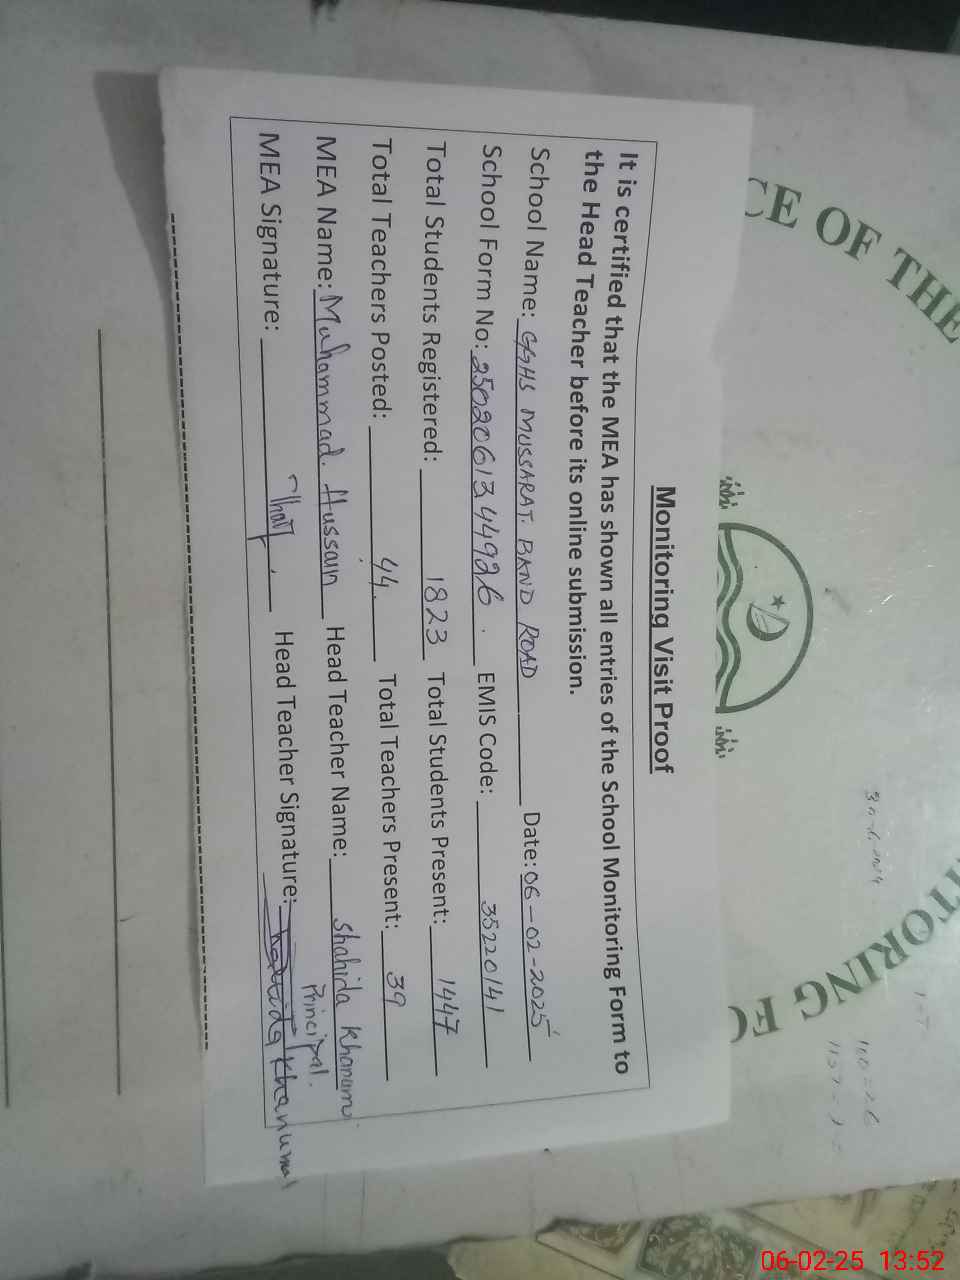 Monitoring Visit Proof
It is certified that the MEA has shown all entries of the School Monitoring Form to
the Head Teacher before its online submission.
School Name: GGHS MUSSARAT BAND ROAD Date: 06-02-2025
School Form No: 2502061344926. EMIS Code: 35220141
Total Students Registered: 1823 Total Students Present: 1447
Total Teachers Posted: 44. Total Teachers Present: 39
MEA Name: Muhammad. Hussain Head Teacher Name: Shahida Khanum
Principal.
MEA Signature: Head Teacher Signature: Khanum
CE OF THE
ITORING FO
06-02-25 13:52